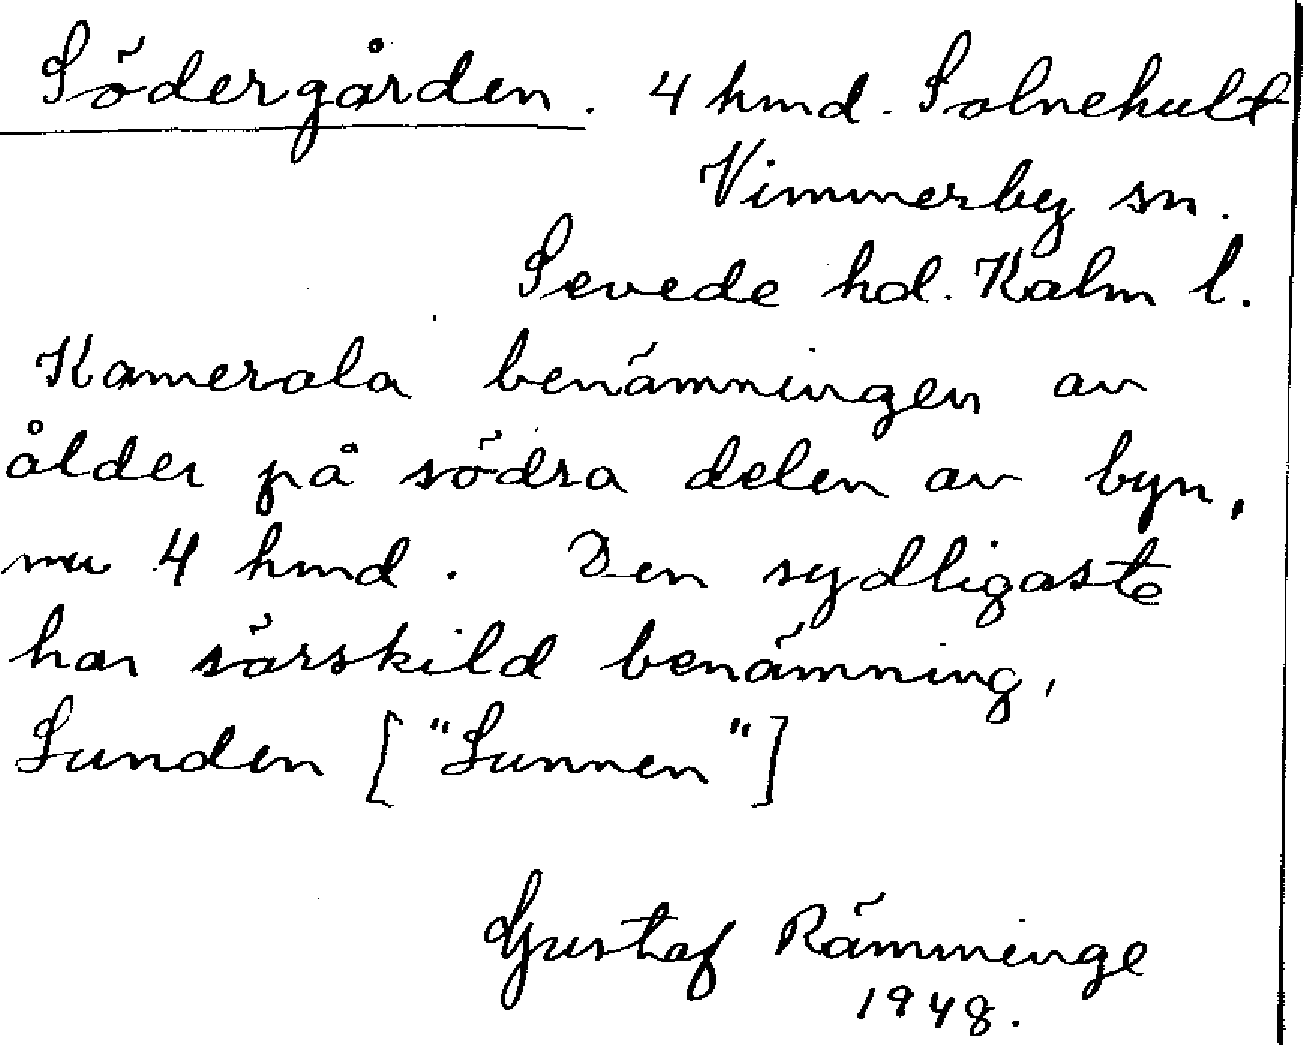 Södergården. 4 hmd. Solnehult
Vimmerby sn.
Sevede hd. Kalm l.
Kamerala benämningen av
ålder på södra delen av byn,
nu 4 hmd. Den sydligaste
har särskild benämning,
Sunden ["Sunnen"]
Gustaf Rämminge
1948.